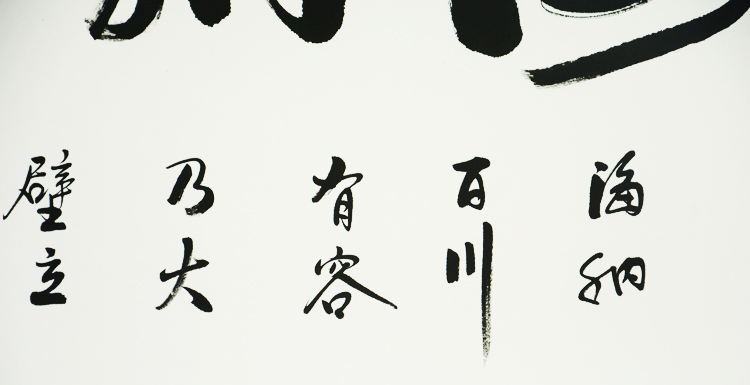 海納
百川
有容
乃大
壁立